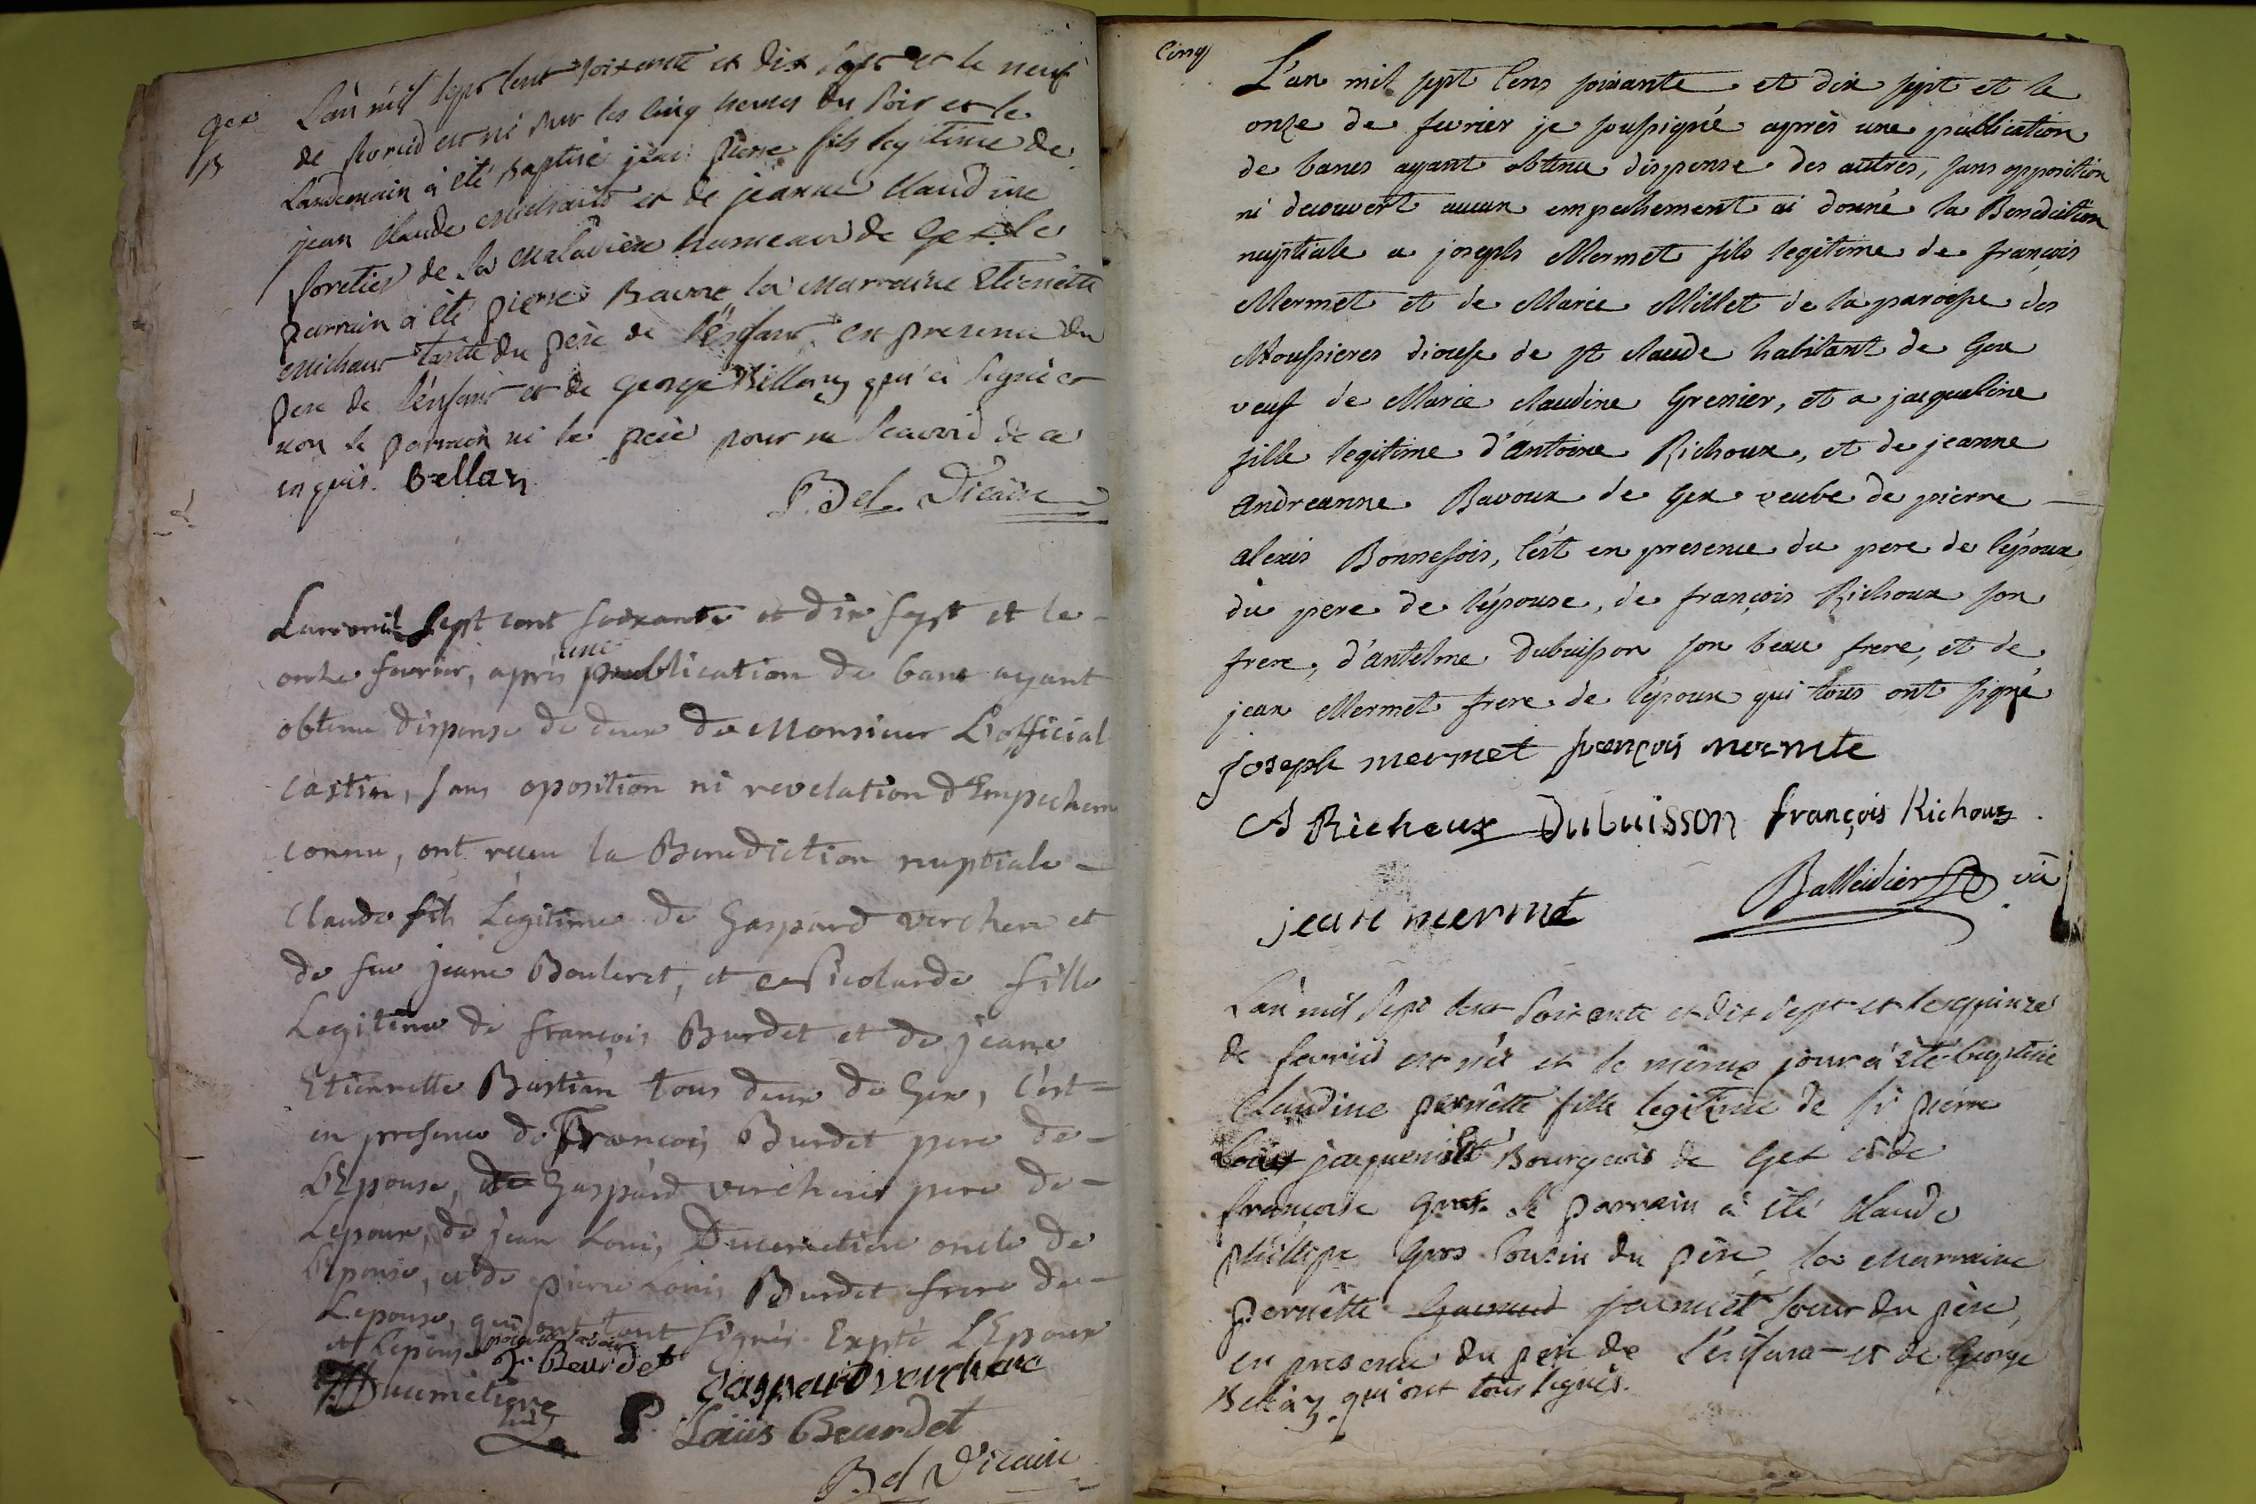 Gex
B
L'an mil sept cent soixante et dix sept et le neuf
de fevrier est né sur les cinq heures du soir et le
landemain à été Baptisé jean pierre fils legitime de
jean claude Michaud et de jeanne claudine
foretier de la Maladiere hameaux de Gex le
parrain à été pierre Bavoux la Marraine Etiennette
Michaux tante du père de l'enfant, en presence du
pere de l'enfant et de George Billan qui a signé et
non le parrain ni le père pour ne scavoir de ce
enquis. Bellan
Bel Vicaire
L'an mil sept cent soixante et dix sept et le -
onze fevrier, après une publication de banc ayant
obtenu dispense de deux de Monsieur L'official
Castin, sans oposition ni revelation d'Empechem
connu, ont reçu la Benediction nuptiale -
Claude fils Legitime de Gaspard verchere et
de feue jeane Bouleret, et Nicolarde fille
Legitime de François Burdet et de jeane
Etiennette Bastian tous deux de Gex, c'est -
en presence de François Burdet pere de -
L'Epouse, de Gaspard verchere pere de -
Lepoux, de jean Loui Ducimetiere oncle de
L'Epouse, et de pierre Loui Burdet frere de -
Lepouse, qui ont tout signés. Expté L'Epoux
et Lepouse
F. Beurdet gaspard verchere
Ducimetiere
P. Louis Beurdet
Bel Vicaire
Cinq
L'an mil sept cens soixante et dix sept et le
onze de fevrier je soussigné après une publication
de bancs ayant obtenu dispense des autres, sans opposition
ni decouvert aucun empechement ai donné la Benediction
nuptiale a joseph Mermet fils legitime de françois
Mermet et de Marie Millet de la paroisse des
Moussieres diocese de St claude habitant de Gex
veuf de Marie claudine Grenier, et a jacqueline
fille legitime d'Antoine Richoux, et de jeanne
Andreanne Bavoux de Gex veuve de pierre -
alexis Bonnefois, c'est en presence du pere de l'époux
du pere de l'épouse, de françois Richoux son
frere, d'antelme Dubuisson son beau frere, et de
jean Mermet frere de l'époux qui tous ont signé
joseph mermet françois mermete
A Richoux Dubuisson françois Richoux.
jean mermet
Balleidier vic
L'an mil sept cent soixante et dix sept et le quinze
de fevrier est née et le même jour à été baptisée
Claudine pernette fille legitime de Sr pierre
Louis jaquemet Bourgeois de Gex et de
françoise Gros le parrain à été claude
philippe Gros Cousin du père, la Marraine
pernette jaquemet soeur du père,
en presence du pere de l'enfant et de George
Bellan qui ont tous signés.